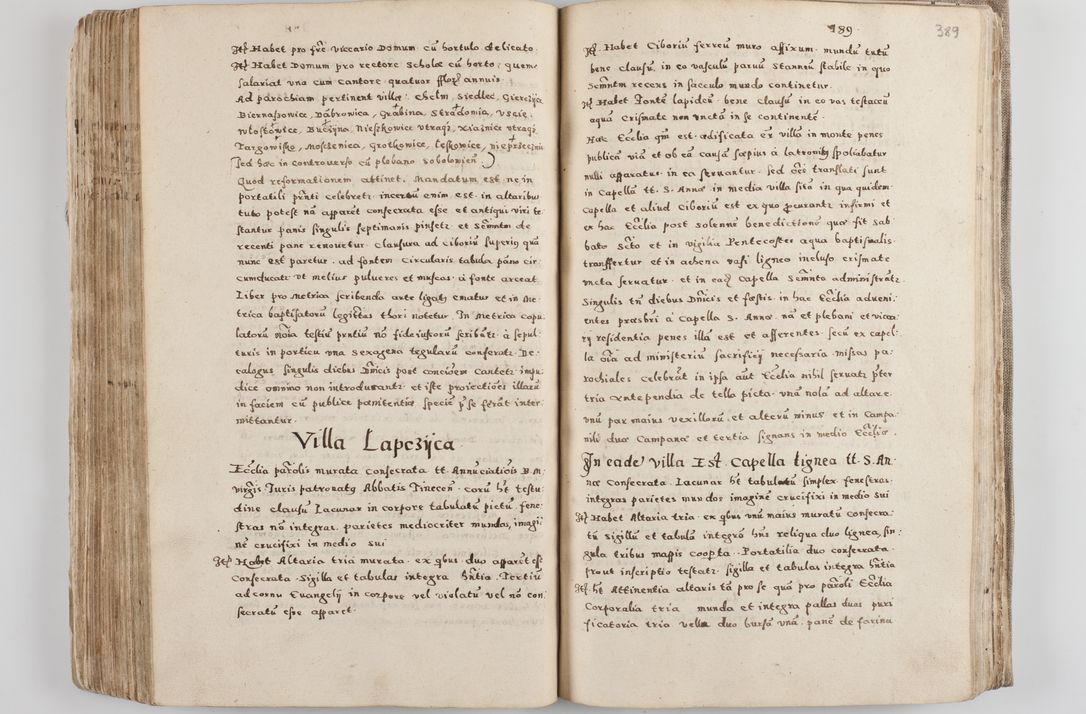 Itē Habet pro fr̄e viccario Domum cū hortulo delicato
Itē Habet Domum pro rectore Scholæ cū horto, quem
salariat vna cum Cantore quatuor fflor annuis
Ad parochiam pertinent villæ Chelm, Siedlec, Gierczijce
Biernaszowice, Dąbrowica, Grabina, Stradomia, Vscie,
Wlostowice, Buczyna, Nieszkowice vtraqȝ, Xiaznice vtraqȝ
Targowisko, Moszczenica, Grotkowice, Leszkowice, nieprzesznia
sed hæc in controuerso cū plebano sobolowien
Quod reformationem attinet. Mandatum est ne in
portatili pn̄ti celebretr incertū enim est in altaribus
tuto potest nā apparet consecrata esse et antiqui viri te
stantur panis singulis septimanis pinsetr et Sc̄mntm de
recenti pane renouetur. clausura ad Ciboriū superiꝰ quā
nunc est paretur. ad fontem Circularis tabula pāno cir
cumducatr vt melius pulueres et muscas à fonte arceat
Liber pro Metrica scribenda arte ligatꝰ ematur et in Me
trica baptisatorū legittȝ thori notetur. In Metrica Copu
latorū no͞ia testiū pn̄tiū nō fideiussorū scribātr à sepul
turis in porticu vna sexagena tegularū conferatr De
calogus singulis diebus Dn̄icis post concionem Cantetr impu
dicæ omnino non introducantr et iste proiectiōes illarū
in faciem cū publicæ pœnitentiæ specie pse ferāt inter
mittantur
Villa Lapczijca
Ecclia parōlis murata consecrata tt. Annūciatiōis B. M
virgis Iuris patronatꝰ Abbatis Tinecen. corū ht testu
dine clausū Lacunar in corpore tabulatū pictū, fene
stras nō integras, parietes mediocriter mundos, imagi
nē crucifixi in medio sui
Itē Habet Altaria tria murata ex qbus duo apparet ēē
Consecrata. Sigilla et tabulas integra hn̄tia. Tertiū
ad cornu Euangelij in corpore vel violatū vel nō con
secratū esse apparet.
189
389
Itē Habet Ciboriū ferreū muro affixum mundū tutū
bene Clausū, in eo vasculū paruū Stanneū stabile in quo
Scm̄ntm recens in sacculo mundo continetur
Itē Habet Fontē lapideū bene Clausū in eo vas testaceū
aquā Crismate non vnctā in se continente
Hæc Ecclia qm̄ est ædificata ex villā in monte penes
publicā viā et ob eā causā sæpius à latronibȝ spoliabatur
nulli apparatus in ea seruantur. sed oēs translati sunt
in Capellā tt. S. Annæ in media villa sitā in qua quidem
Capella et aliud Ciborium est ex quo pcurantr infirmi et
ex hac Ecclia post solenne benedictionē quæ fit sab
bato Scto et in vigilia Pentecostes aqua baptismalis
transffertur et in achena vasi ligneo incluso crismate
vncta seruatur. et in eadȝ Capella Sc̄mnta administrātr
Singulis tn̄ diebus Dn̄icis et fæstis in hac Ecclia adueni
entes præsbri à Capella S. Annæ. nā et plebani et vicca
rij residentia penes illā est et afferentes secū ex capel
la oīa ad ministeriū sacrificij necessaria missas pa
rochiales celebrāt in ipsa aūt Ecclia nihil seruatr pter
tria Antependia de tella picta. vnā nolā ad altare
vnū par maius vexillorū et alterū minus et in Campa
nili duæ Campanæ et tertia signans in medio Ecciæ
In eadē villa Est Capella lignea tt. S. An
næ Consecrata. Lacunar ht tabulatū simplex fenestras
integras parietes mundos imaginē crucifixi in medio sui
Itē Habet Altaria tria ex qbus vnū maius muratū consecra
tū sigillū et tabulā integrā hns reliqua duo lignea, sin
gula tribus mappis coopta. Portatilia duo consecrata
prout inscriptio testatr sigilla et tabulas integra hn̄tia
Itē ht Attinentia altaris tā pro se quā pro parōli Ecclia
Corporalia tria munda et integra pallas duas puri
ficatoria tria vella duo bursā vnā. panē de farina